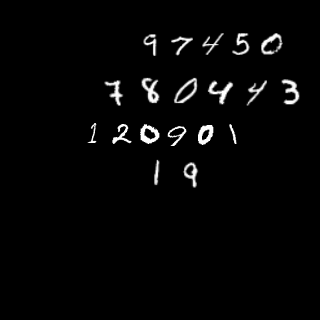 97450
780443
120901
19